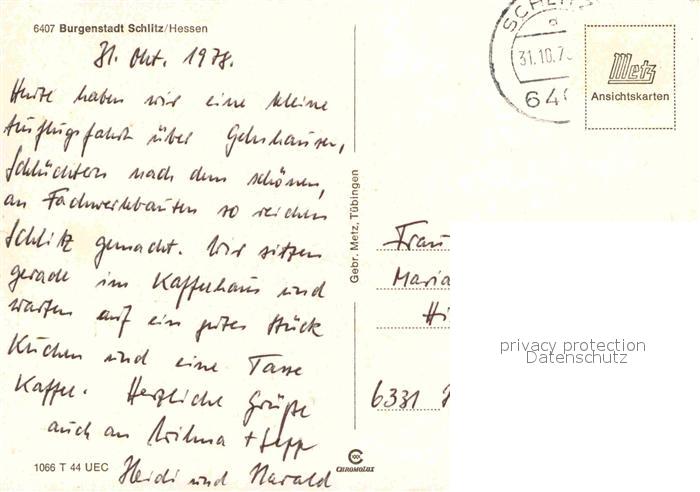 6407 Burgenstadt Schlitz/Hessen
31. Okt. 1978.
Heute haben wir eine kleine
Ausflugsfahrt über Gelnhausen,
Schlüchtern nach dem schönen,
an Fachwerkbauten so reichen
Schlitz gemacht. Wir sitzen
gerade im Kaffeehaus und
warten auf ein gutes Stück
Kuchen und eine Tasse
Kaffee. Herzliche Grüße
auch an Wilma + Sepp
Heidi und Harald
1066 T 44 UEC
Gebr. Metz, Tübingen
CHROMOLUX
SCHLITZ
a
31.10.7
640
Metz
Ansichtskarten
Frau
Maria
Hi
6331
privacy protection
Datenschutz